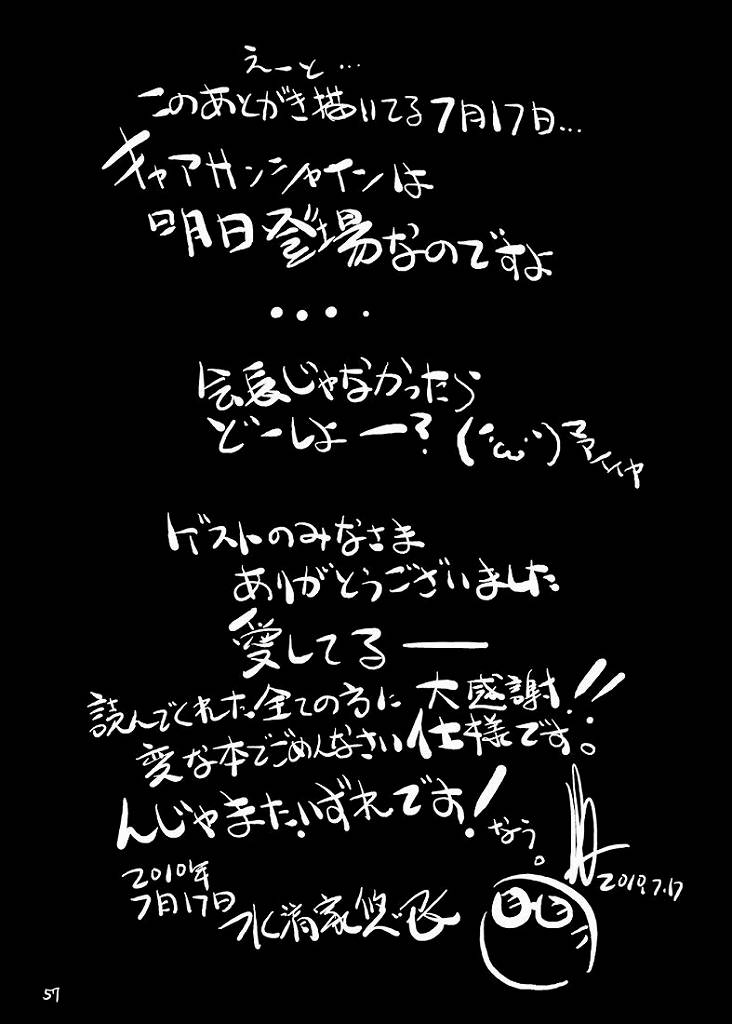 えーと…
このあとがき描いてる7月17日…
キュアサンシャインは
明日登場なのですよ
・・・・
会長じゃなかったら
どーしよー?(´・ω・`)
ゲストのみなさま
ありがとうございました
愛してるー
読んでくれた全ての方に大感謝!!
変な本でごめんなさい仕様です。
んじゃまたいずれです!なう。
2010年
7月17日
2010.7.17
57